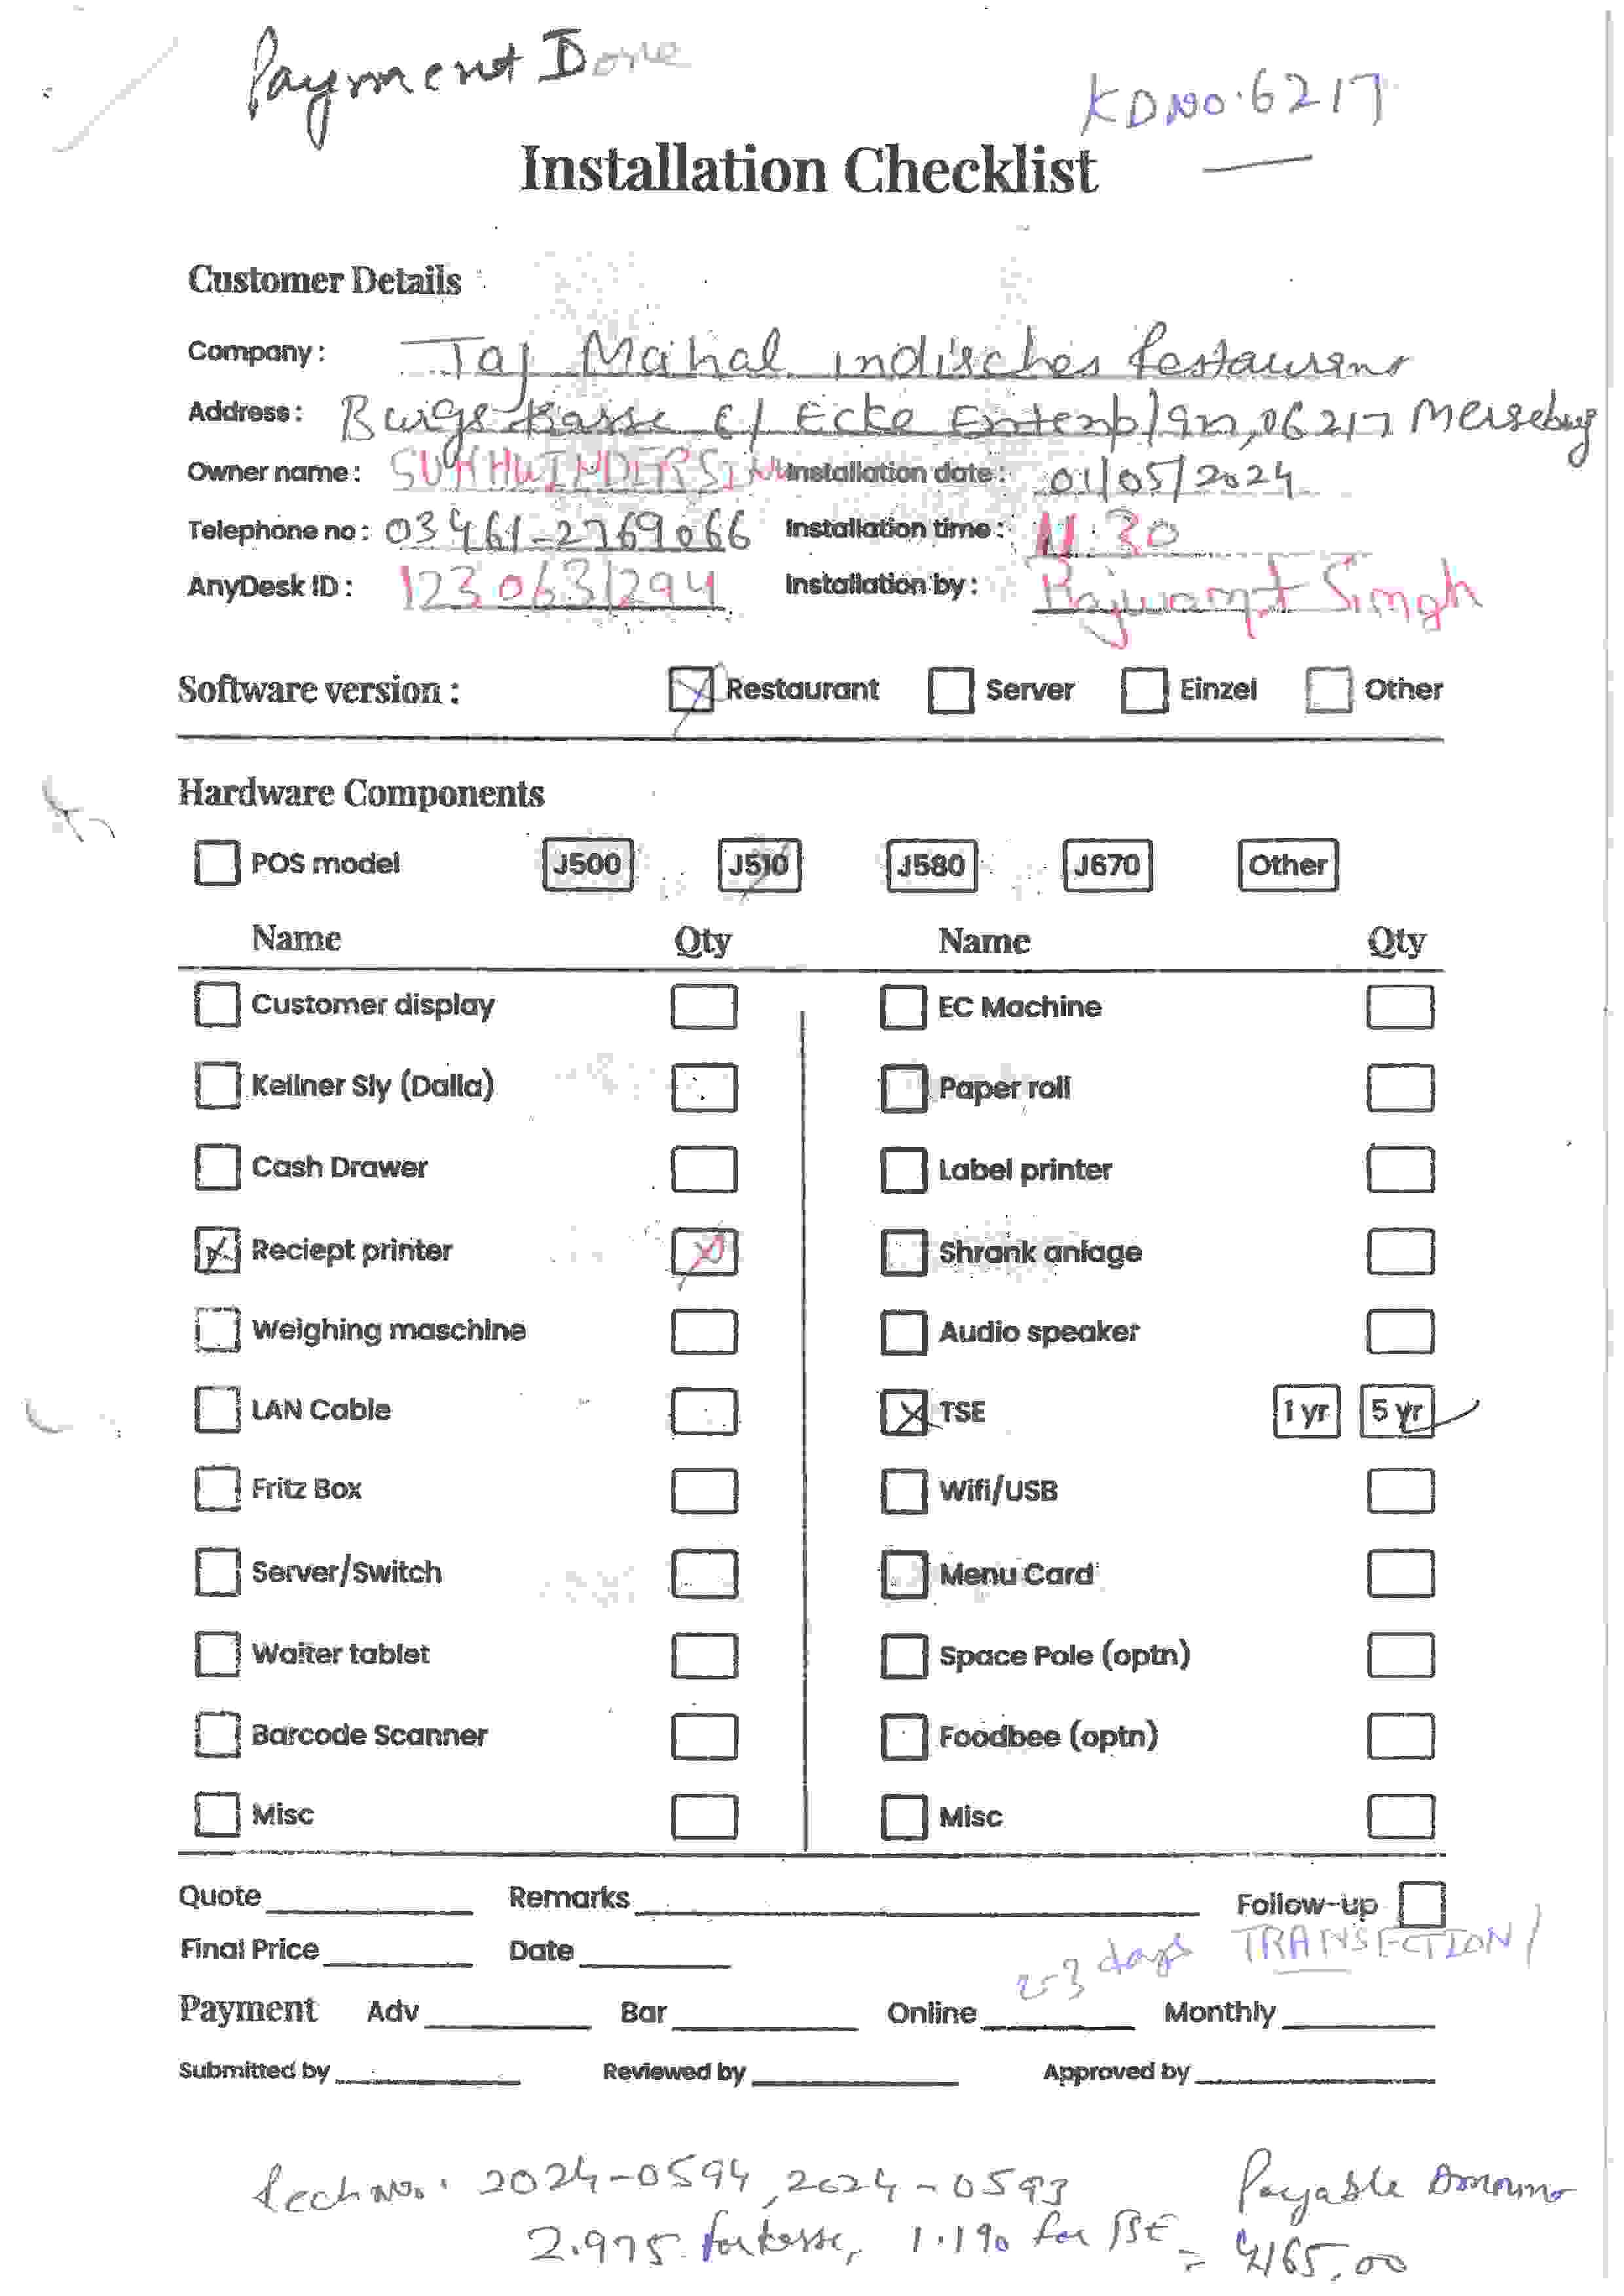 Payment Done
KD NO. 6217
Installation Checklist
Customer Details
Company: Taj Mahal indisches Restaurant
Address: Burgstrasse 6/ Ecke Entenplan, 06217 Merseburg
Owner name: SUKHWINDER SIN Installation date: 01/05/2024
Telephone no: 03461-2769066 Installation time: 11:30
AnyDesk ID: 1230631294 Installation by: Singh
Software version: Restaurant Server Einzel Other
Hardware Components
POS model J500 J510 J580 J670 Other
Name Qty Name Qty
Customer display EC Machine
Kellner Sly (Dalla) Paper roll
Cash Drawer Label printer
Reciept printer Shrank anlage
Weighing maschine Audio speaker
LAN Cable TSE 1 yr 5 yr
Fritz Box Wifi/USB
Server/Switch Menu Card
Waiter tablet Space Pole (optn)
Barcode Scanner Foodbee (optn)
Misc Misc
Quote Remarks Follow-up
Final Price Date 2-3 days TRANSECTION/
Payment Adv Bar Online Monthly
Submitted by Reviewed by Approved by
Rech No. 2024-0594, 2024-0593 Payable Amount
2.975 for kasse, 1.190 for TSE = 4165,00